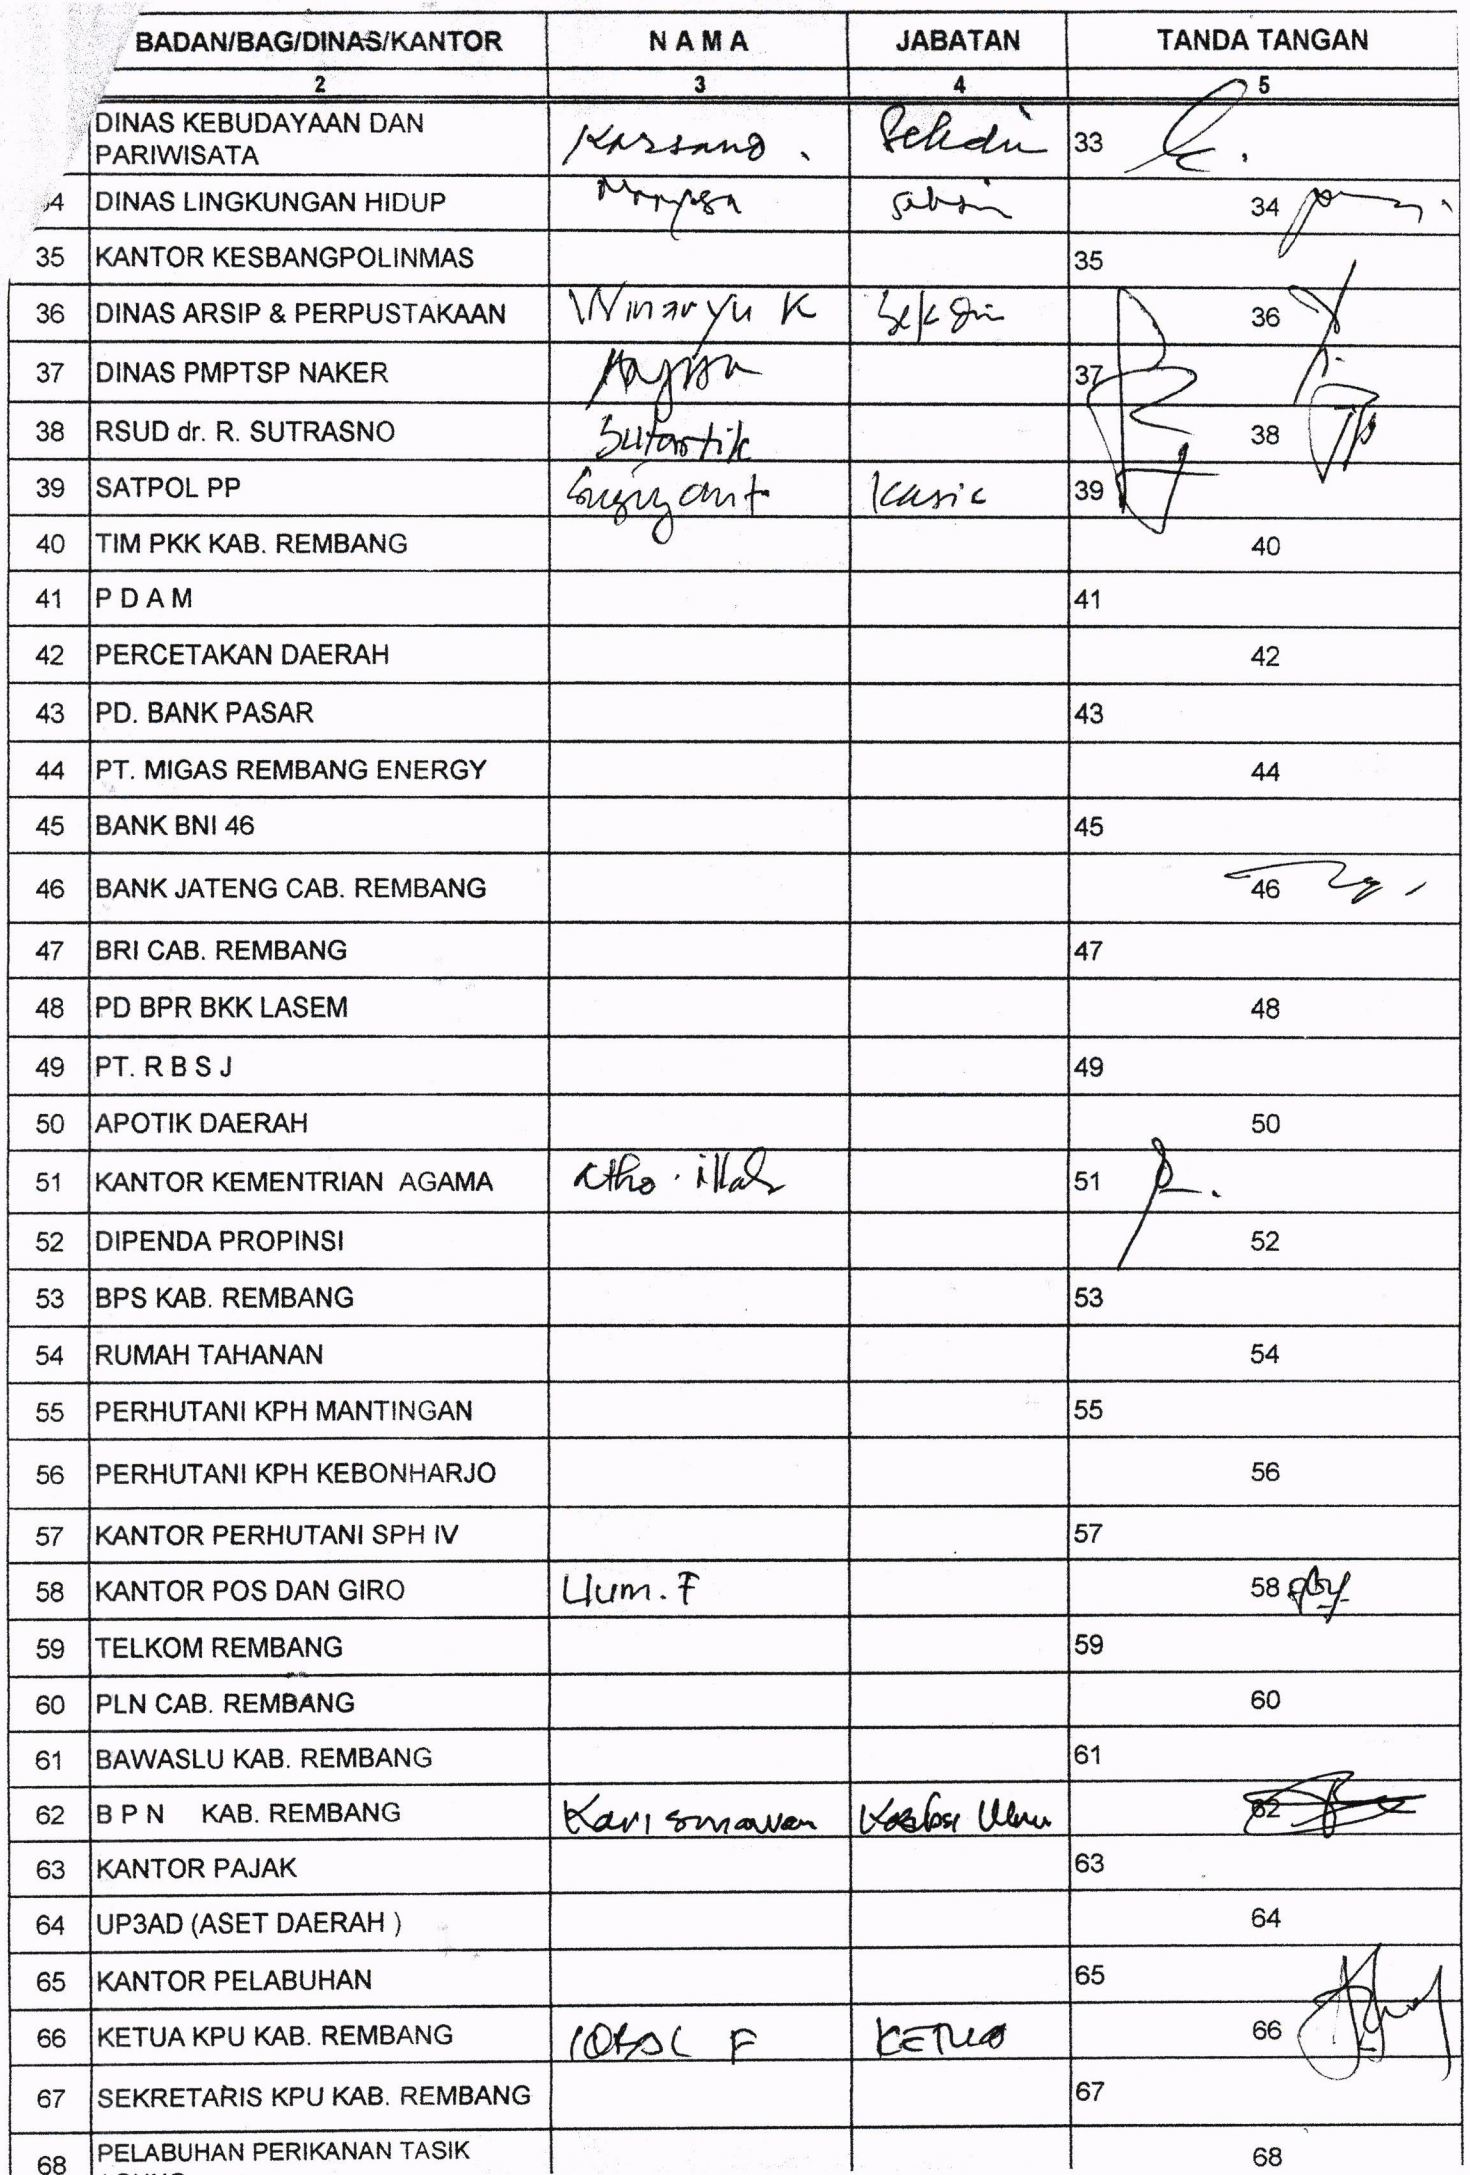 BADAN/BAG/DINAS/KANTOR N A M A JABATAN TANDA TANGAN
2 3 4 5
DINAS KEBUDAYAAN DAN
PARIWISATA Karsono. Sekdin 33
DINAS LINGKUNGAN HIDUP 34
35 KANTOR KESBANGPOLINMAS 35
36 DINAS ARSIP & PERPUSTAKAAN Winaryu K Sekdin 36
37 DINAS PMPTSP NAKER 37
38 RSUD dr. R. SUTRASNO Sutartik 38
39 SATPOL PP Kasie 39
40 TIM PKK KAB. REMBANG 40
41 P D A M 41
42 PERCETAKAN DAERAH 42
43 PD. BANK PASAR 43
44 PT. MIGAS REMBANG ENERGY 44
45 BANK BNI 46 45
46 BANK JATENG CAB. REMBANG 46
47 BRI CAB. REMBANG 47
48 PD BPR BKK LASEM 48
49 PT. R B S J 49
50 APOTIK DAERAH 50
51 KANTOR KEMENTRIAN AGAMA Atho. illah 51
52 DIPENDA PROPINSI 52
53 BPS KAB. REMBANG 53
54 RUMAH TAHANAN 54
55 PERHUTANI KPH MANTINGAN 55
56 PERHUTANI KPH KEBONHARJO 56
57 KANTOR PERHUTANI SPH IV 57
58 KANTOR POS DAN GIRO 58
59 TELKOM REMBANG 59
60 PLN CAB. REMBANG 60
61 BAWASLU KAB. REMBANG 61
62 B P N KAB. REMBANG Karismawan 62
63 KANTOR PAJAK 63
64 UP3AD (ASET DAERAH ) 64
65 KANTOR PELABUHAN 65
66 KETUA KPU KAB. REMBANG IQBAL F KETUA 66
67 SEKRETARIS KPU KAB. REMBANG 67
68 PELABUHAN PERIKANAN TASIK 68